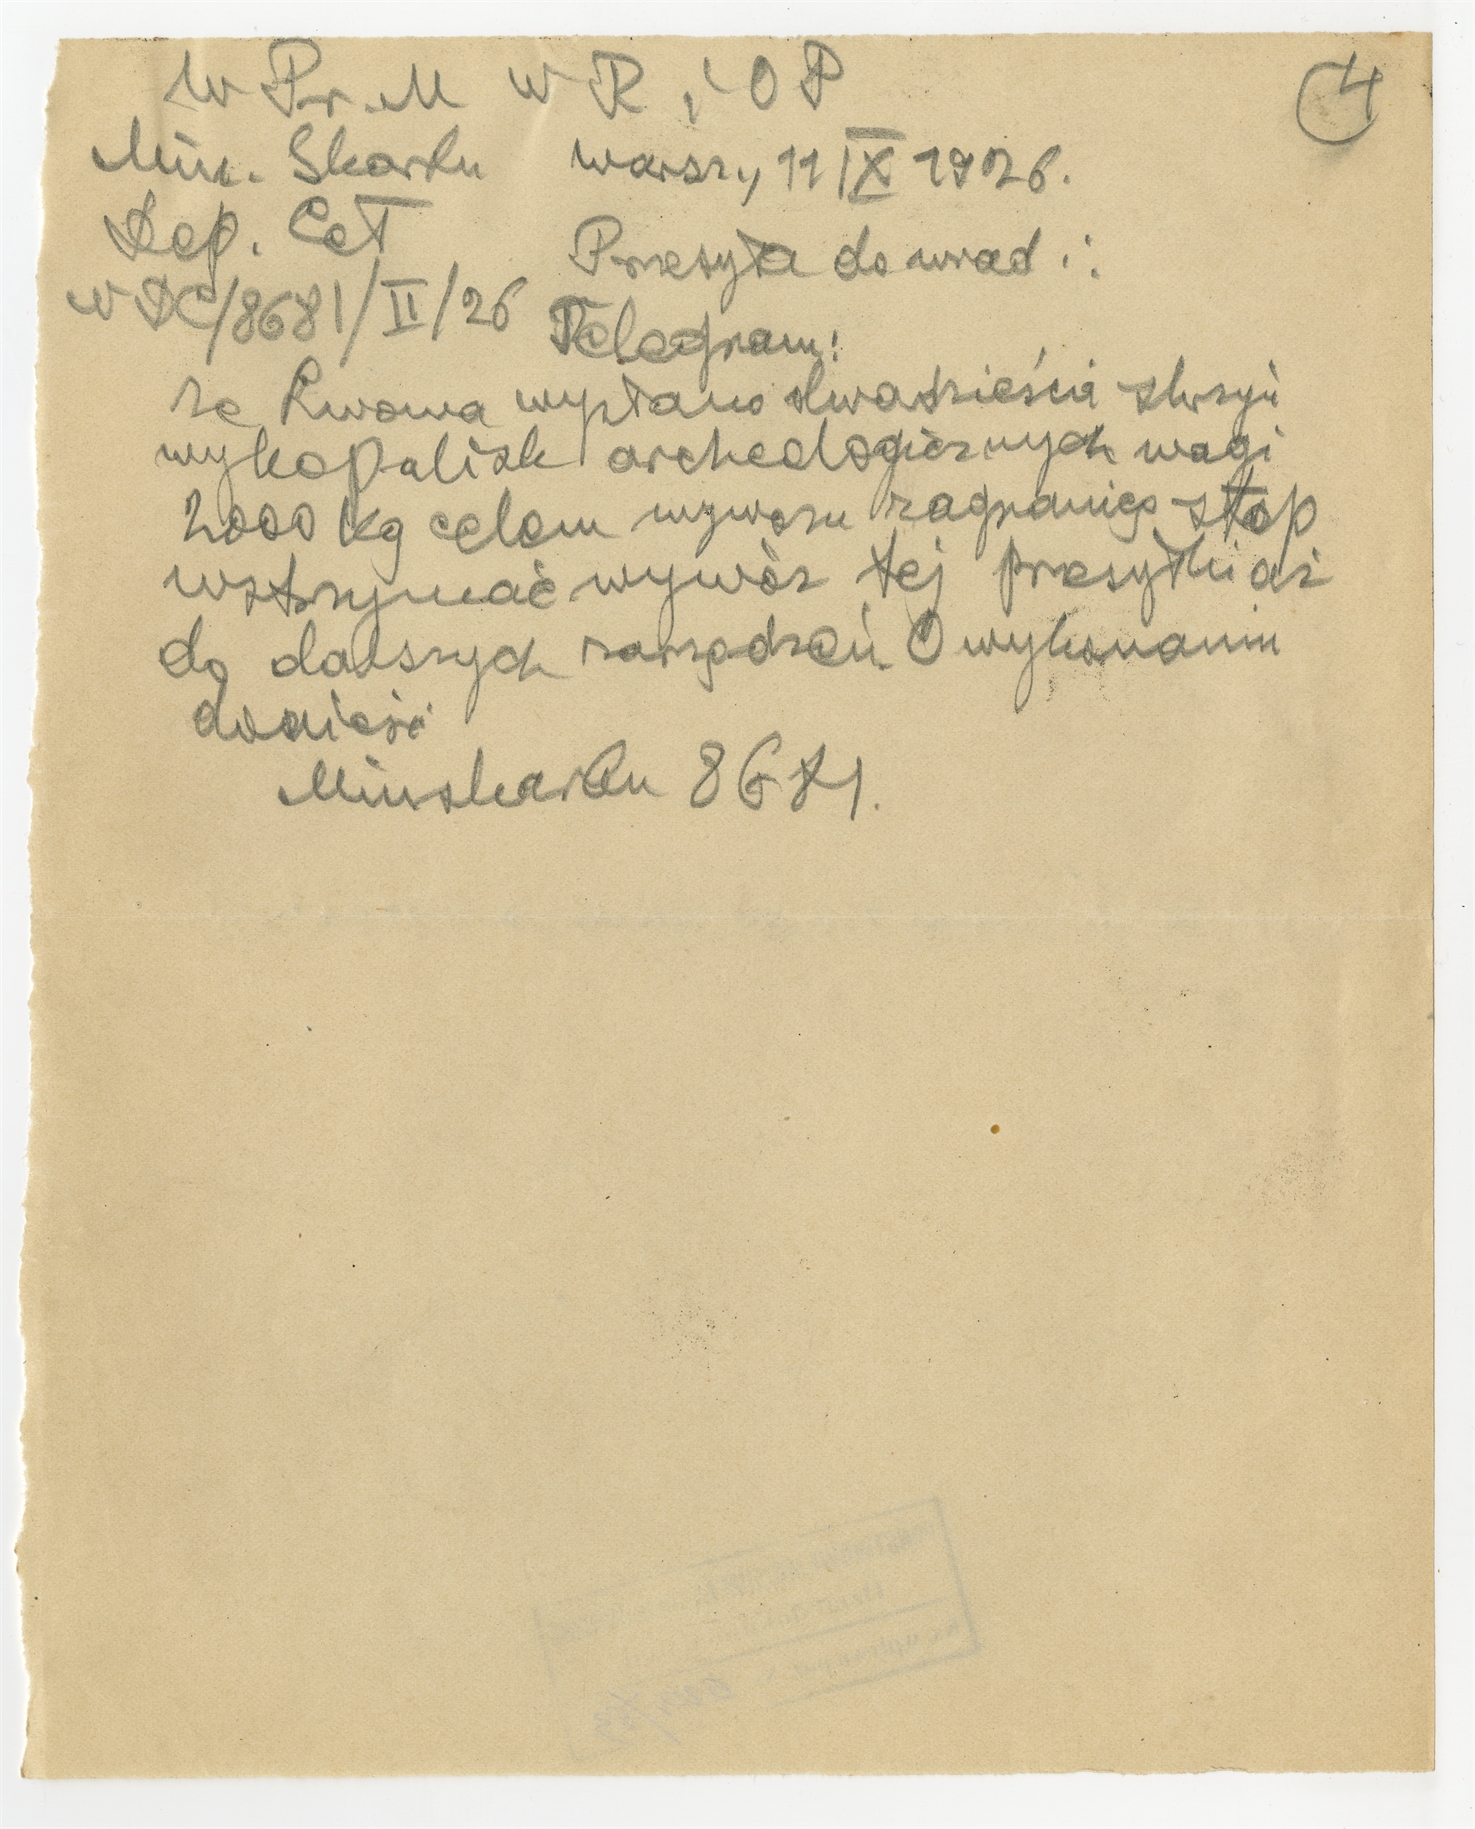 4
W Pr. M W R i O P
Min. Skarbu Warsz., 11 IX 1926.
Dep. Ceł Przesyła do wiad.:
W DC/8681/II/26 Telegram:
ze Lwowa wysłano dwadzieścia skrzyń
wykopalisk archeologicznych wagi
2000 kg celem wywozu zagranicę stop
wstrzymać wywóz tej przesyłki aż
do dalszych zarządzeń. O wykonaniu
donieść
Minskarbu 8681.